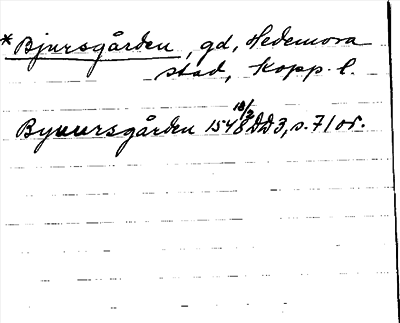 * Bjursgården, gd, Hedemora
stad, Kopp. l.
Byuursgården 1548 18/3 DD3, s. 71 or.